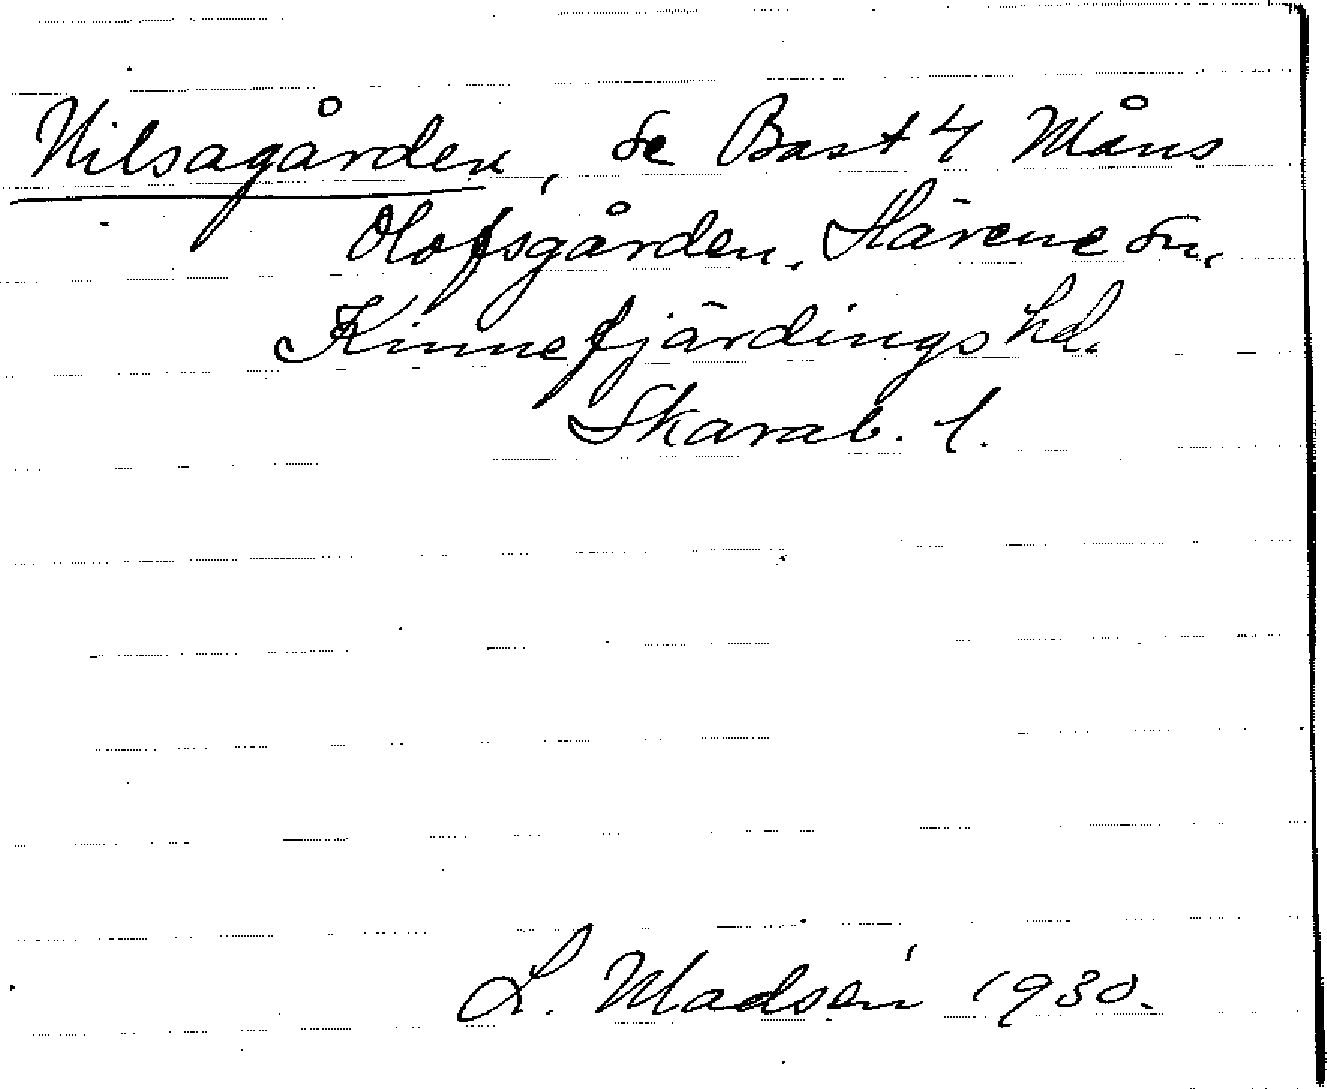 Nilsagården, se Bast 4 Måns
Olofsgården, Härene sn,
Kinnefjärdings hd.
Skarab. l.
L. Madsén 1930.